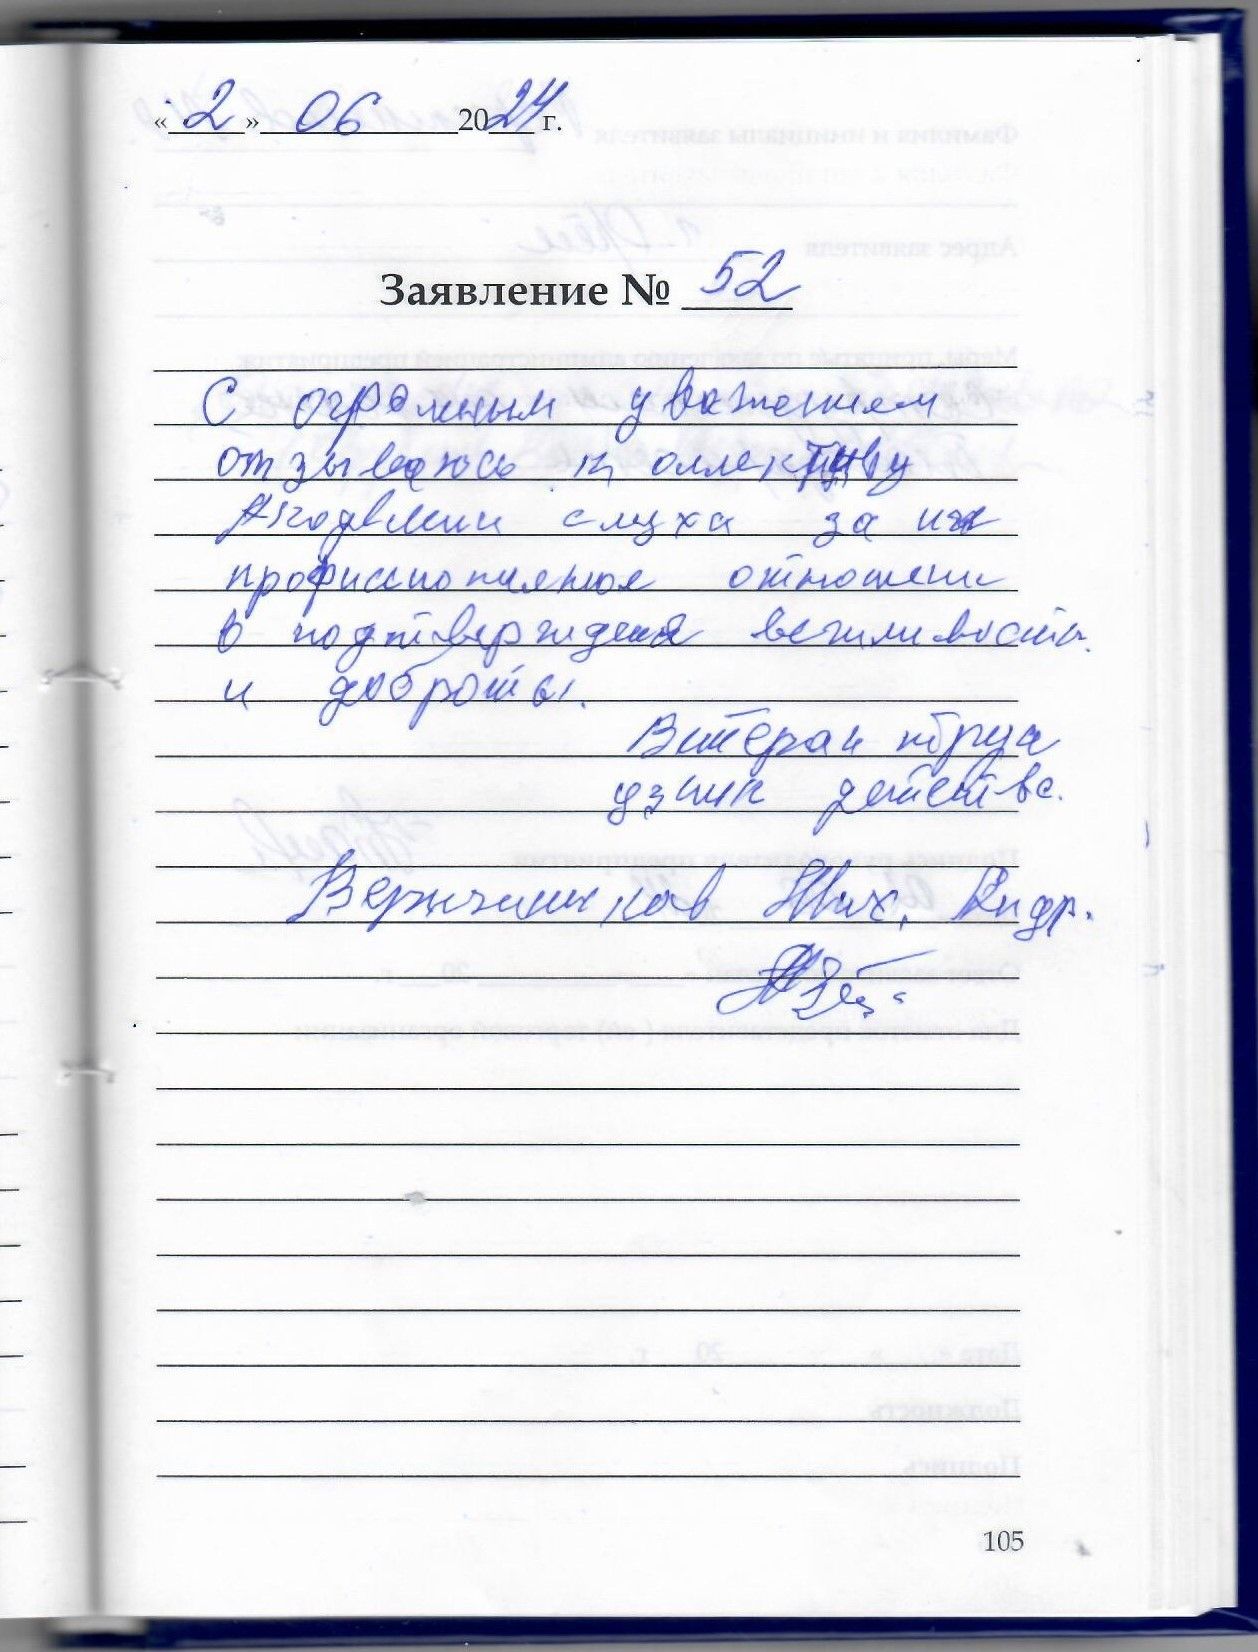 «2» 06 2024 г.
Заявление № 52
С огромным уважением
отзываюсь к коллективу
Академии слуха за их
профиссиональное отношени
в подтверждения вежливости
и доброты.
Витеран труда
узник детства.
Мих. Андр.
105